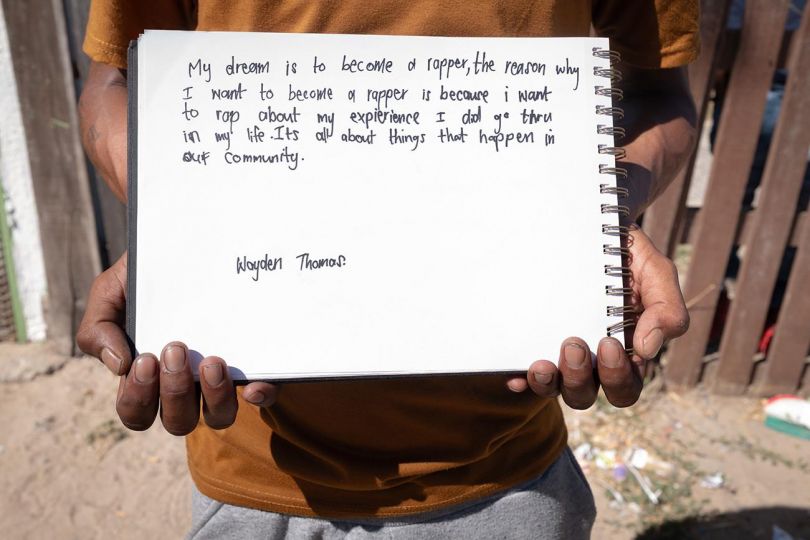 My dream is to become a rapper, the reason why
I want to become a rapper is because i want
to rap about my expierience I did go thru
in my life. Its all about things that happen in
our community.
Wayden Thomas.